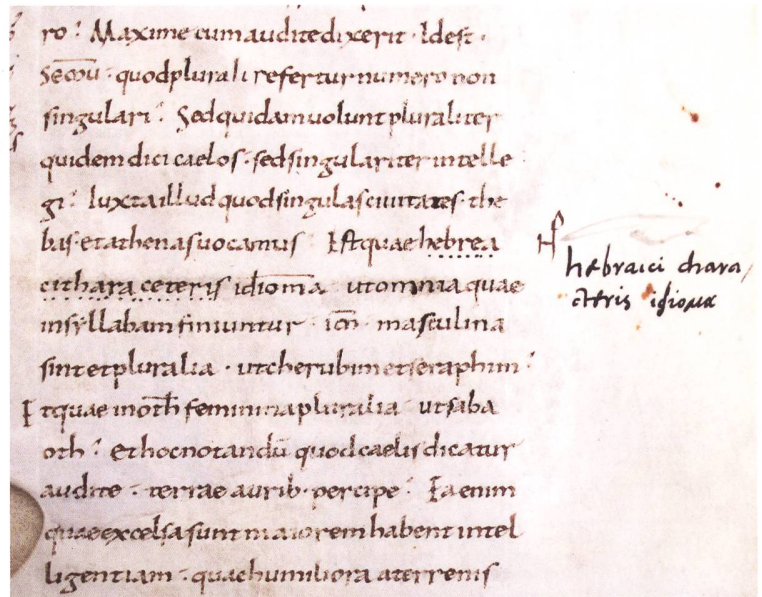 ro : Maxime cum audite dixerit · Idest ·
Seōmu · quod plurali refertur numero non
singulari : Sed quidam uolunt pluraliter
quidem dici caelos · sed singulariter intelle
gi : Iuxta illud quod singulas ciuitates · the
bas · et athenas uocamus Est quae hebrea
cithara ceteris idioma ut omnia quae
in syllabam finiuntur · im · masculina
sint et pluralia · ut cherubim et seraphim :
Et quae in oth feminina pluralia ut saba
oth : et hoc notandū quod caelis dicatur
audite · terrae aurib· percipe : Ea enim
quae excelsa sunt maiorem habent intel
ligentiam · quae humiliora a terrenis
hebraici chara/
cteris idioma